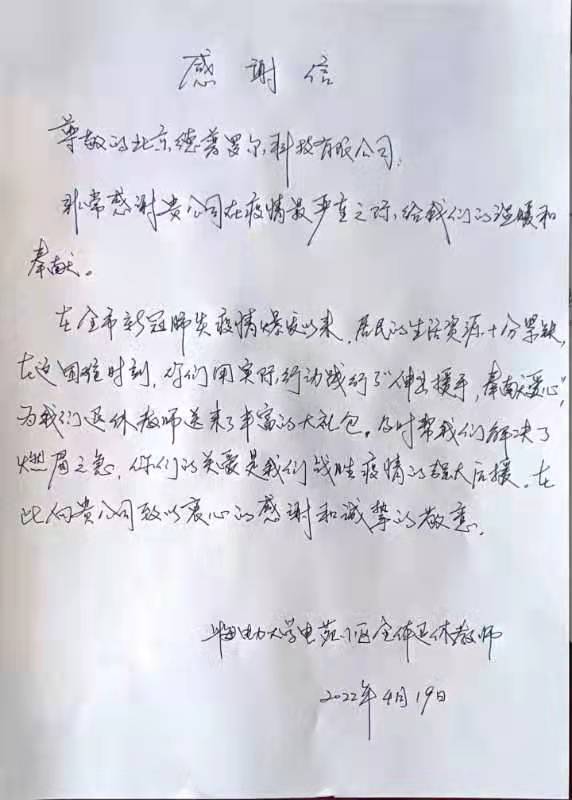 感谢信
尊敬的北京德普罗尔科技有限公司,
非常感谢贵公司在疫情最严重之际,给我们的温暖和
奉献。
在全市新冠肺炎疫情爆发以来,居民的生活资源十分紧缺,
在这困难时刻,你们用实际行动践行了“伸出援手,奉献爱心”,
为我们退休教师送来了丰富的大礼包。及时帮我们解决了
燃眉之急,你们的关爱是我们战胜疫情的强大后援。在
此向贵公司致以衷心的感谢和诚挚的敬意。
上海电力大学电苑小区全体退休教师
2022年4月19日